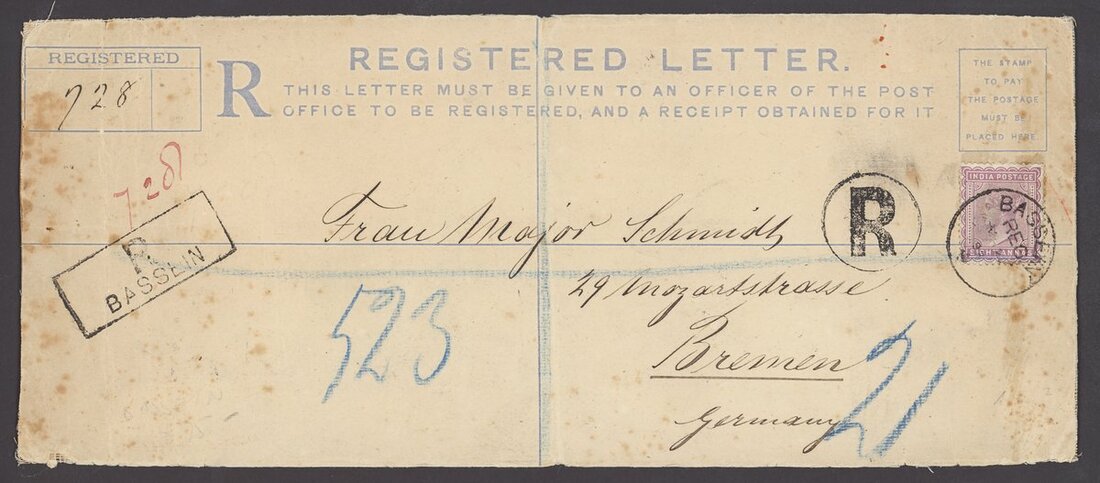 REGISTERED
728
R
REGISTERED LETTER.
THIS LETTER MUST BE GIVEN TO AN OFFICER OF THE POST
OFFICE TO BE REGISTERED, AND A RECEIPT OBTAINED FOR IT
THE STAMP
TO PAY
THE POSTAGE
MUST BE
PLACED HERE.
728
R
BASSEIN
Frau Major Schmidt
29 Mozartstrasse
Bremen
Germany
R
INDIA POSTAGE
EIGHT ANNAS
BASSEIN
REG
523
21